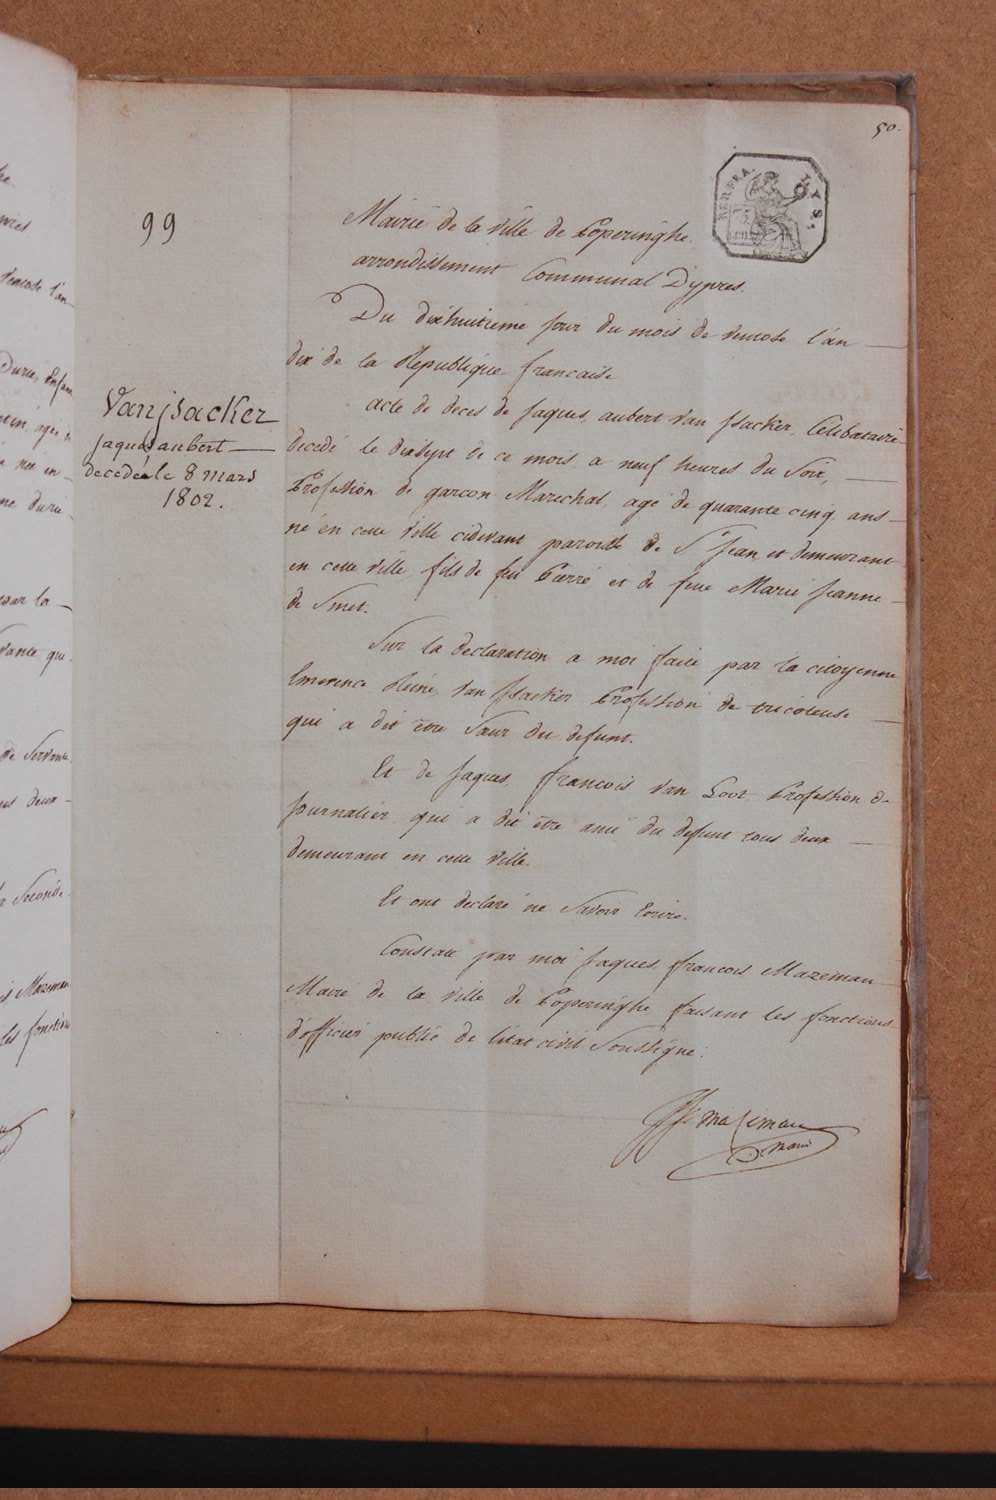 50.
REP. FRA.
99
Mairie de la ville de Poperinghe.
arrondissement Communal Dypres.
Du dixhuitieme jour du mois de ventose l'an
dix de la Republique francaise
acte de deces de Jaques, aubert Van Jsacker, Celibataire
decedé le dixsept de ce mois, a neuf heures du Soir,
Profession de garcon Marechal, agé de quarante cinq ans
né en cette ville cidevant paroisse de St Jean, et demeurant
en cette ville, fils de feu Pierre et de feue Marie Jeanne
de Smet.
Sur la declaration a moi faite par la citoyenne
Emerence Reine, Van Jsacker Profession de tricoteuse
qui a dit être Sœur du defunt.
Et de Jaques, francois Van Loot Profession de
Journalier qui a dit être ami du defunt tous deux
demeurant en cette ville.
Et ont declaré ne Savoir Ecrire.
Constaté par moi Jaques francois Mazeman
Maire de la ville de Poperinghe faisant les fonctions
d'officier public de l'etat civil Soussigné.
JF Mazeman
maire
Vanjsacker
jaques aubert
decedé le 8 mars
1802.